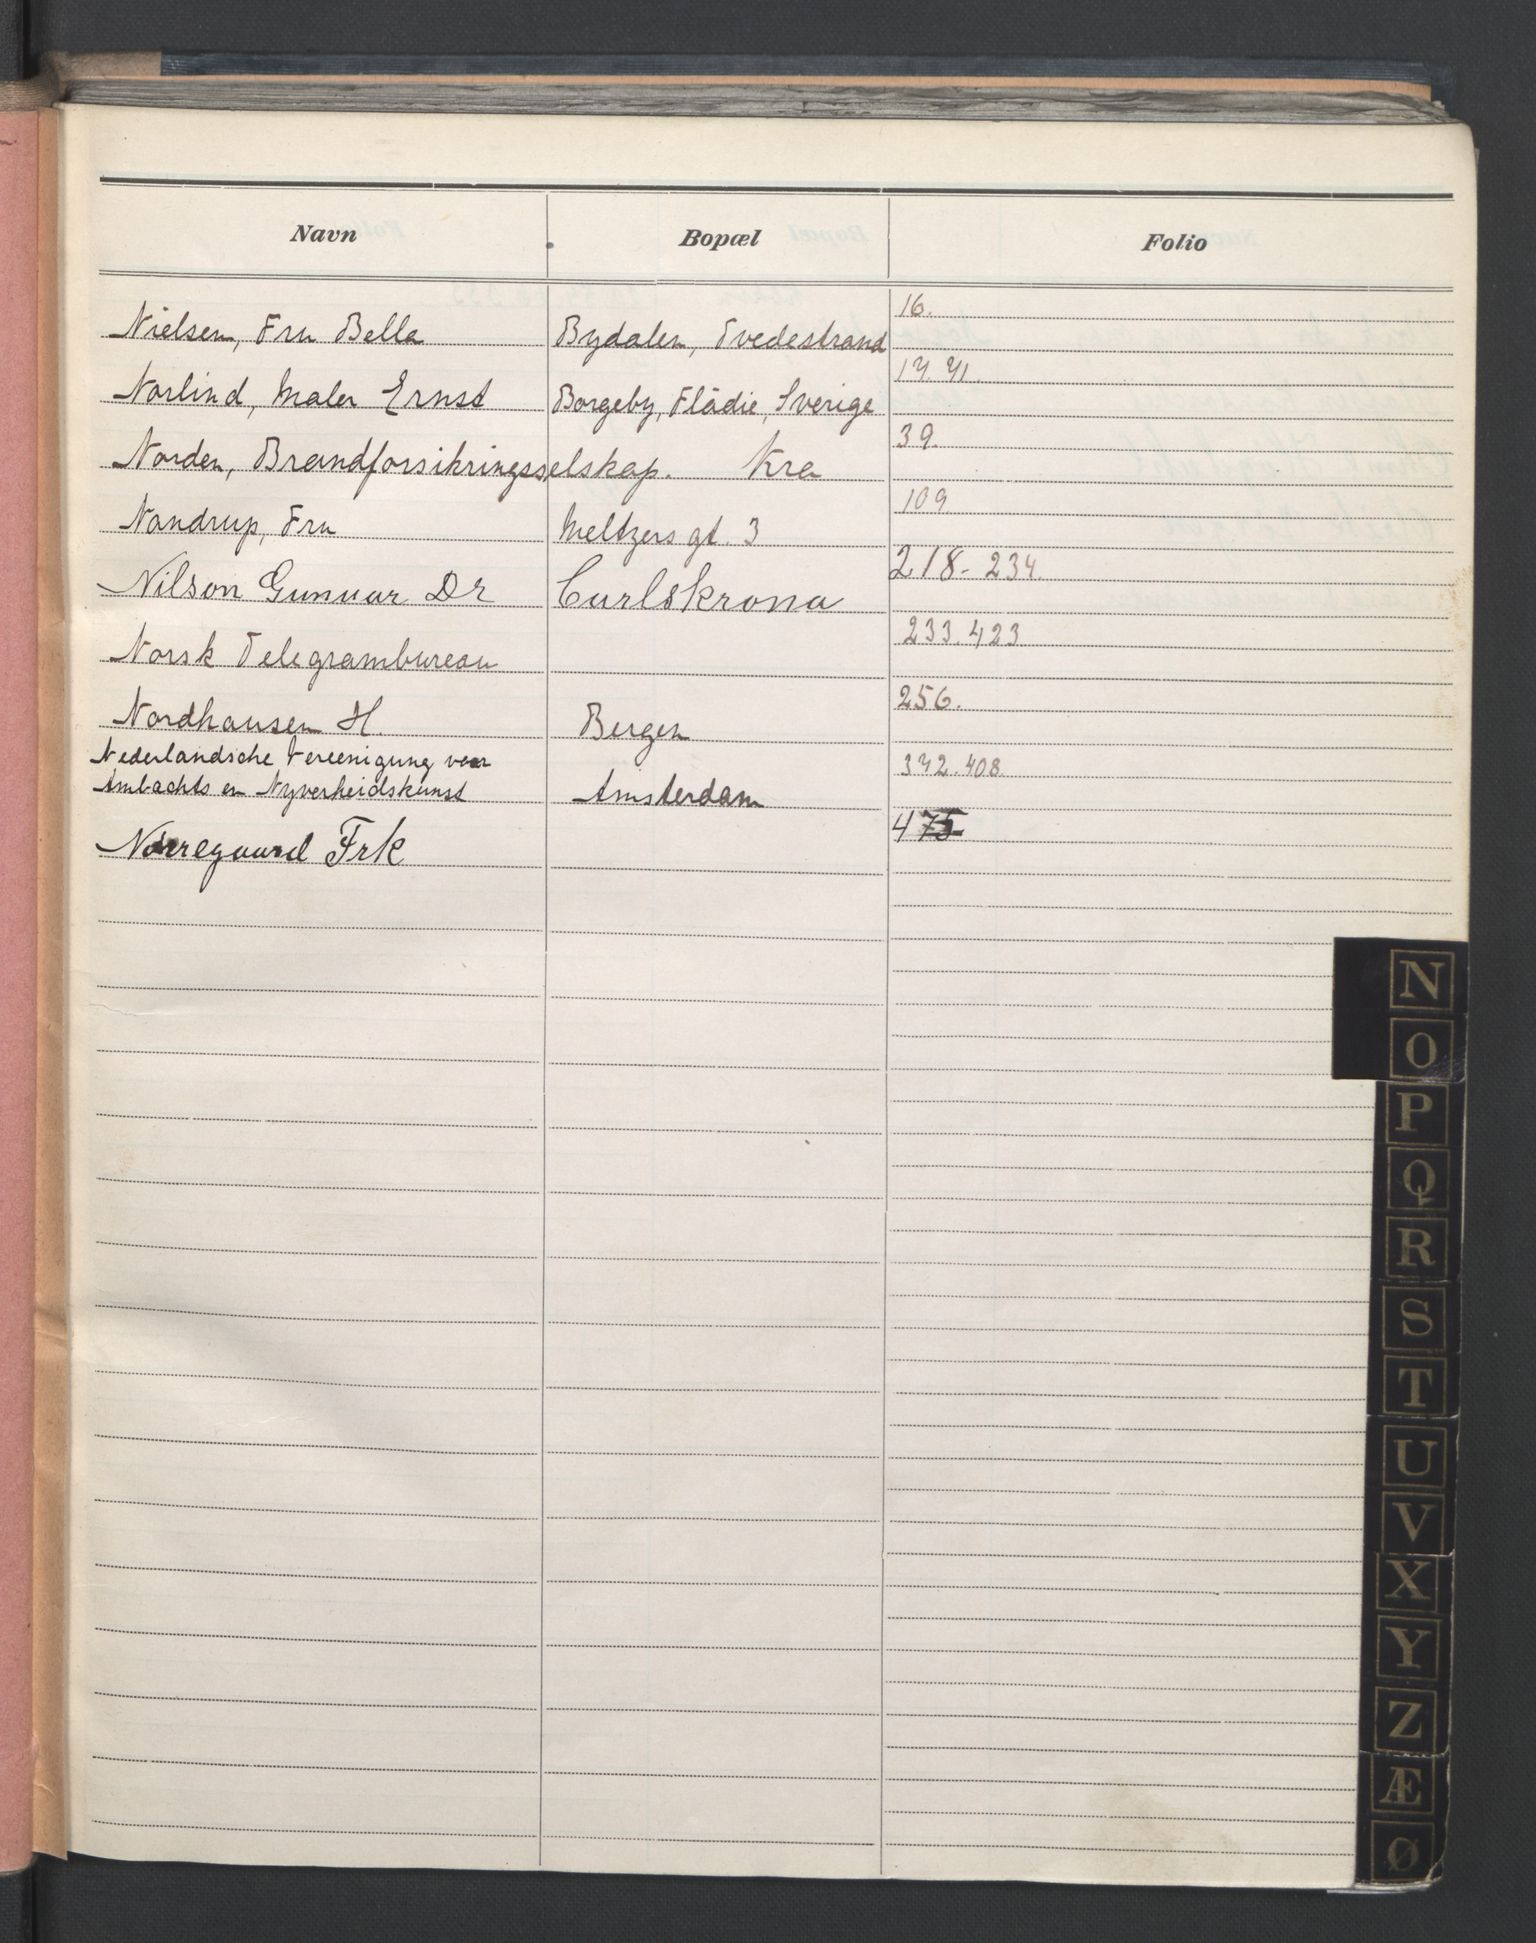 Navn Bopæl Folio
Nielsen, Fru Bella Bydalen, Tvedestrand 16.
Norlind, Maler Ernst Borgeby, Flädie, Sverige 17. 71.
Norden, Brandforsikringsselskap. Kra 39.
Nandrup, Fru Meltzers gt. 3 109
Nilson Gunnar Dr Carlskrona 218- 234.
Norsk Telegrambureau 233. 423
Nordhausen H. Bergen 256.
Nederlandsche Vereenigung voor
Ambachts en Nyverheidskunst Amsterdam 372. 408
Nørregaard Frk 475
N
O
P
Q
R
S
T
U
V
X
Y
Z
Æ
Ø